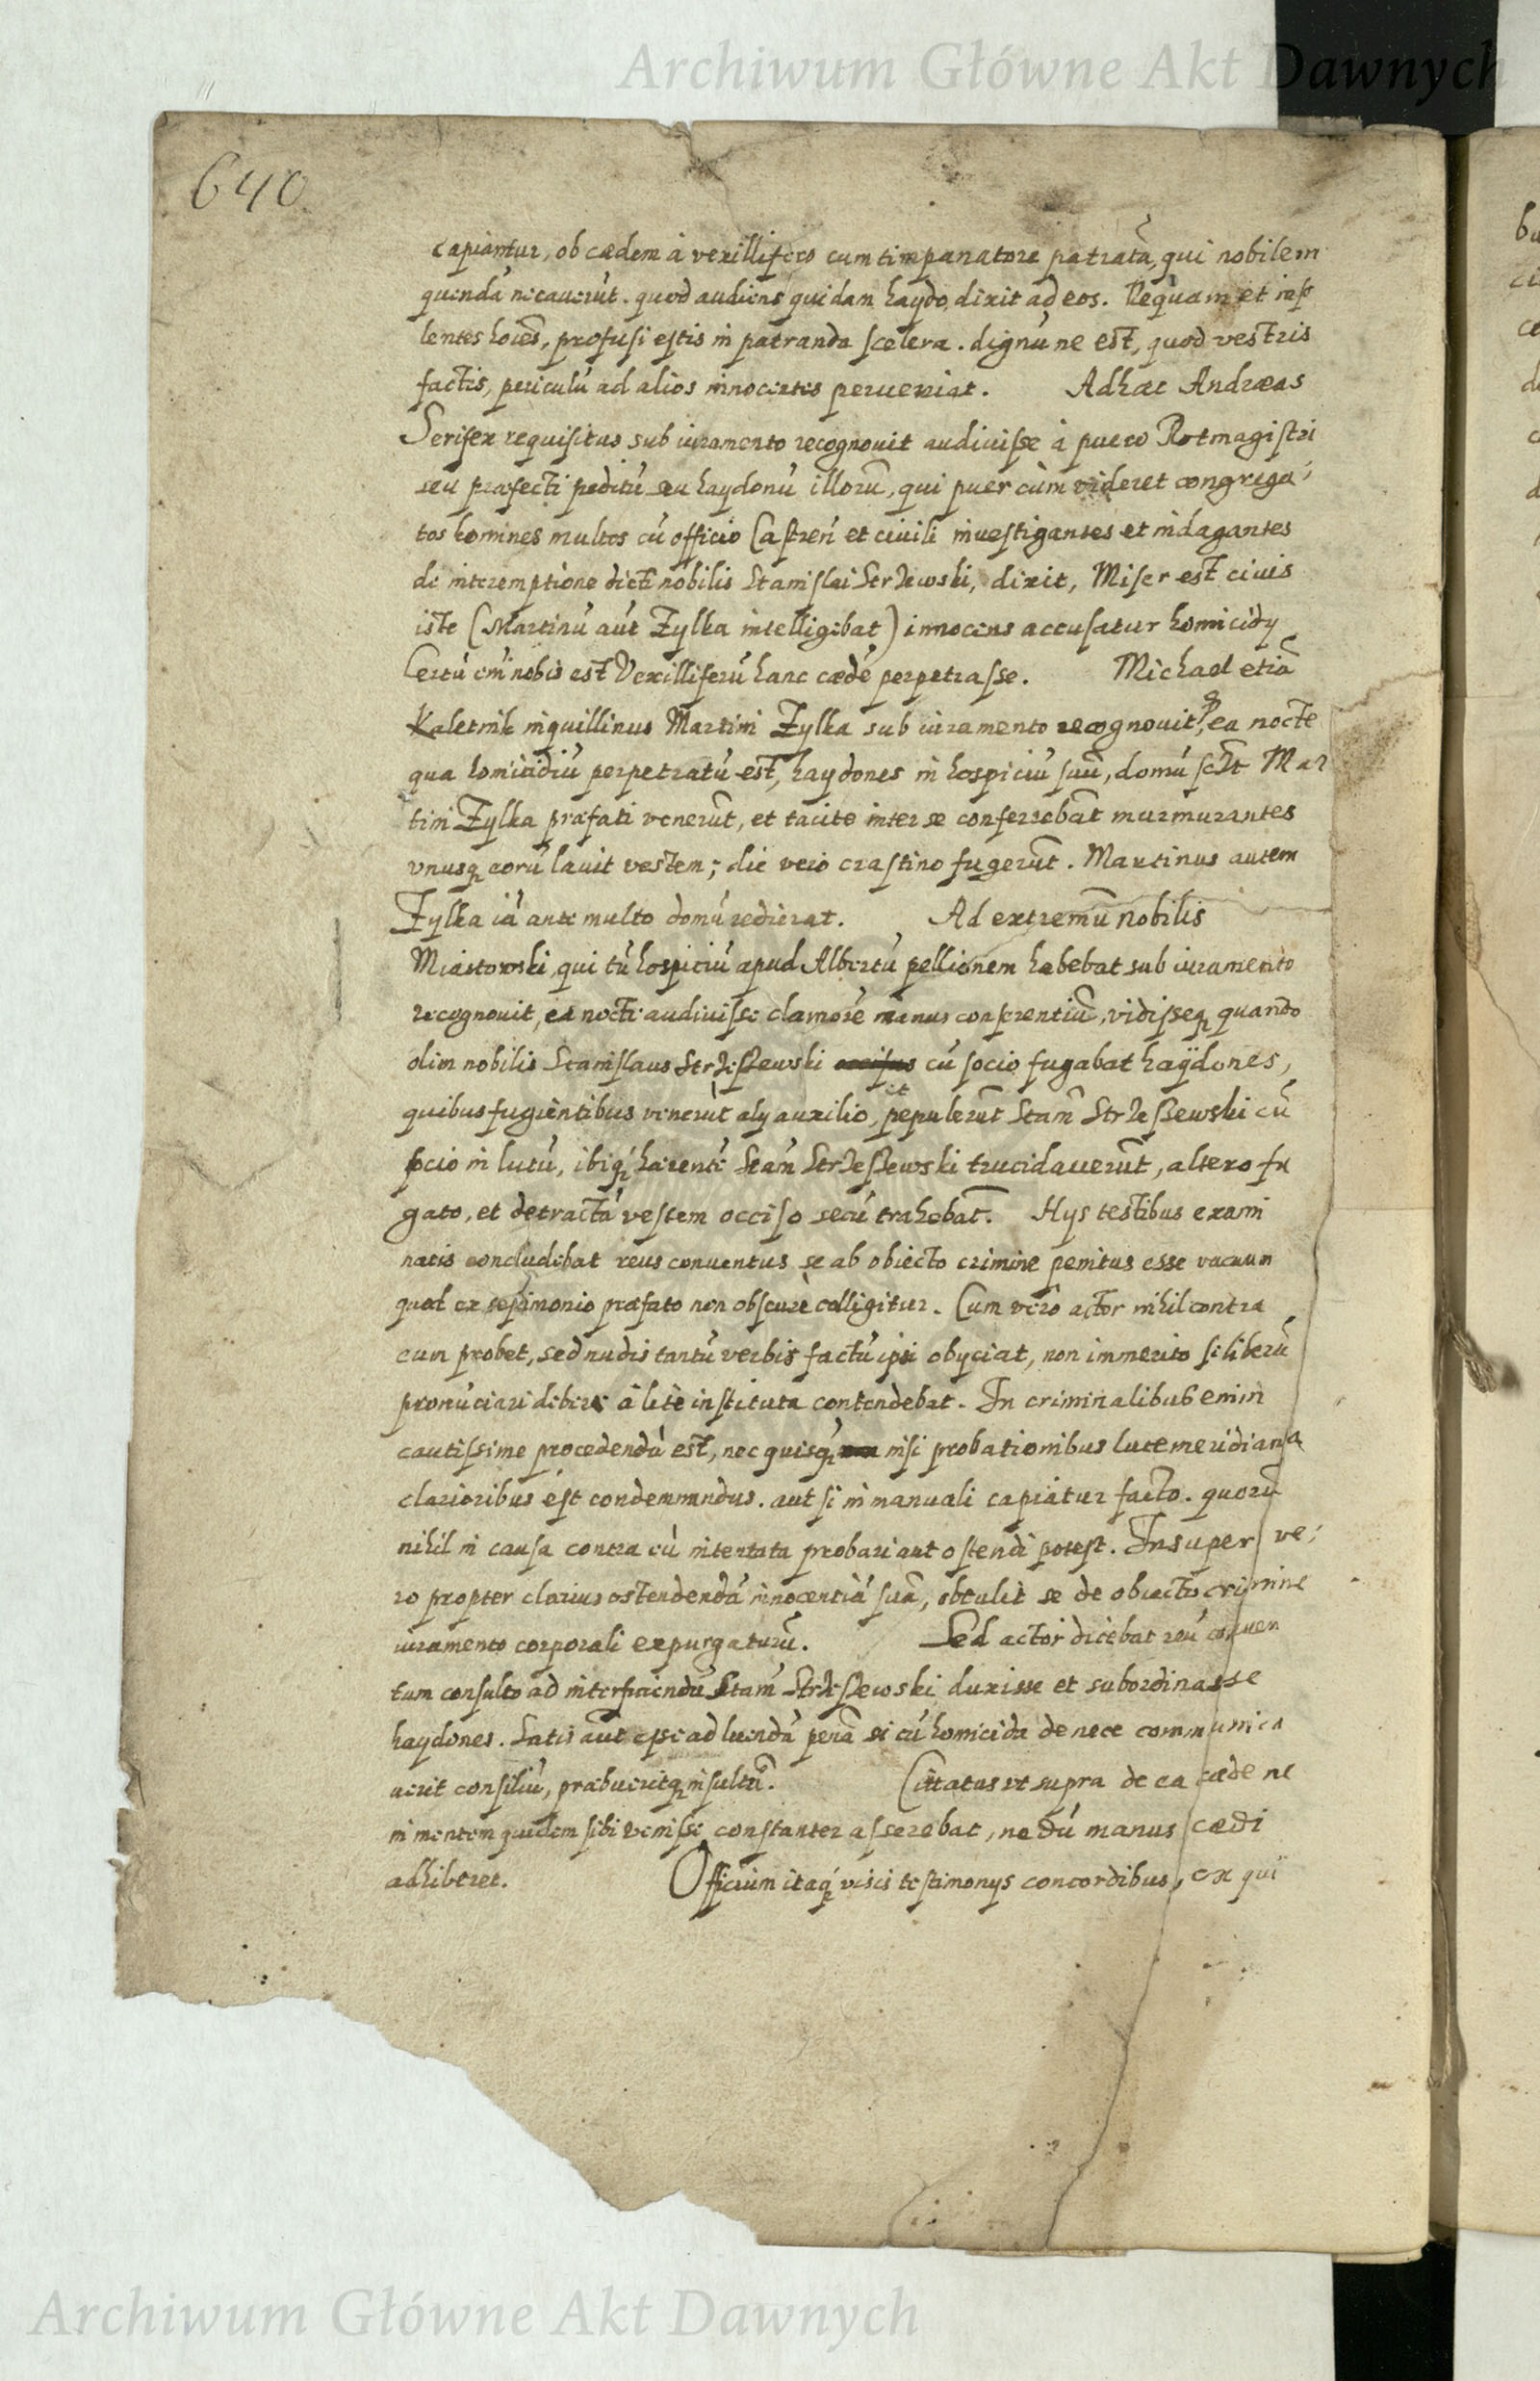 Archiwum Główne Akt Dawnych
640
capiantur, ob cædem à vexillifero cum timpanatore patratã, qui nobilem
quendã necauerũt. quod audiens quidam haydo, dixit ad eos. Nequam et inso
lentes hoiẽs, profusi estis in patranda scelera. dignũ ne est, quod vestris
factis, periculũ ad alios innocentes perueniat. Adhæc Andræas
Serifex requisitus sub iuramento recognouit audiuisse à puero Rotmagistri
seu præfecti peditũ seu haydonũ illorũ, qui puer cùm videret congrega-
tos homines multos cũ officio Castreñ et ciuili inuestigantes et indagantes
de interemptione dicti nobilis Stanislai Strzewski, dixit, Miser est ciuis
iste (Martinũ aũt Zylka intelligebat) innocens accusatur homicidy
Certũ em̃ nobis est Vexilliferũ hanc cædẽ perpetrasse. Michael etiã
Kaletnik inquillinus Martini Zylka sub iuramento recognouit, ꝙ ea nocte
qua homicidiũ perpetratũ est, haydones in hospiciũ suũ, domũ sclt Mar
tini Zylka præfati venerũt, et tacite inter se conferrebãt murmurantes
vnusqȝ eorũ lauit vestem; die vero crastino fugerũt. Martinus autem
Zylka iã ante multo domũ redierat. Ad extremũ nobilis
Miastowski, qui tũ hospiciũ apud Albertũ pellionem habebat sub iuramento
recognouit, ea nocte audiuisse clamorẽ manus conserentiũ, vidisseqȝ quando
olim nobilis Stanislaus Strzeszewski occisus cũ socio fugabat haÿdones,
quibus fugientibus venerũt aly auxilio, et pepulerũt Stañ Strzeszewski cũ
socio in lutũ, ibiqȝ hærentẽ Stañ Strzeszewski trucidauerũt, altero fu
gato, et detractã vestem occiso secũ trahebãt. Hys testibus exami
natis concludebat reus conuentus se ab obiecto crimine penitus esse vacuum
quod ex testimonio præfato non obscurè colligitur. Cum verò actor nihil contra
eum probet, sed nudis tantũ verbis factũ ipsi obyciat, non immerito se liberũ
pronũciari debere à lite instituta contendebat. In criminalibus enim
cautissime procedendũ est, nec quisqȝ nisi probationibus luce meridiana
clarioribus est condemnandus. aut si in manuali capiatur facto. quorũ
nihil in causa contra eũ intentata probari aut ostendi potest. Insuper ve-
ro propter clarius ostendendã innocentiã suã, obtulit se de obiecto crimine
iuramento corporali expurgaturũ. Sed actor dicebat reũ conuen
tum consulto ad interficiendũ Stañ Strzeszewski duxisse et subordinasse
haydones. Satis aũt esse ad luendã penã si cũ homicida de nece communica
uerit consiliũ, præbueritqȝ insultũ. Cittatus vt supra de ea cæde ne
in mentem quidem sibi venisse constanter asserebat, nedũ manus cædi
adhiberet. Officium itaqȝ visis testimonys concordibus, ex qui
Archiwum Główne Akt Dawnych